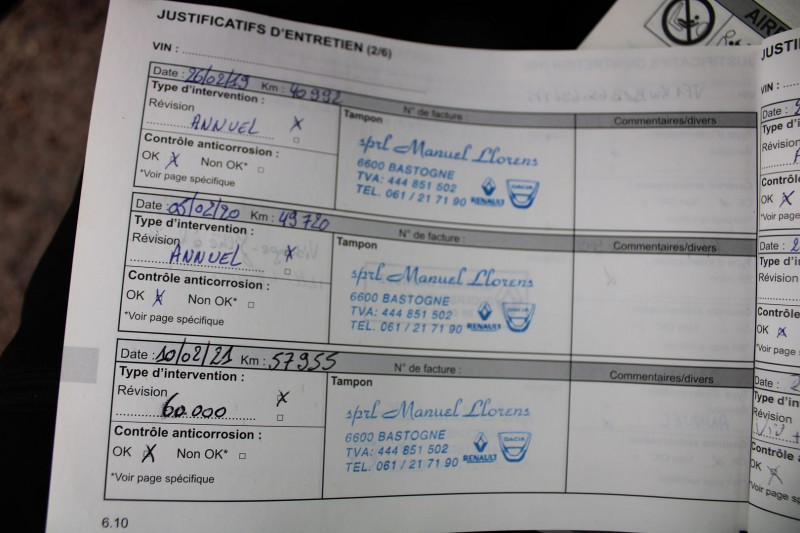 JUSTIFICATIFS D'ENTRETIEN (2/6)
VIN :
Date : 26/02/19 Km : 40992
Type d'intervention : N° de facture : Commentaires/divers
Révision Tampon
ANNUEL X
Contrôle anticorrosion :
OK X Non OK* □
*Voir page spécifique
sprl Manuel Llorens
6600 BASTOGNE
TVA: 444 851 502
TEL. 061 / 21 71 90 RENAULT DACIA
Date : 05/02/20 Km : 49720
Type d'intervention : N° de facture : Commentaires/divers
Révision Tampon
ANNUEL X
Contrôle anticorrosion :
OK X Non OK* □
*Voir page spécifique
sprl Manuel Llorens
6600 BASTOGNE
TVA: 444 851 502
TEL. 061 / 21 71 90 RENAULT DACIA
Date : 10/02/21 Km : 57955
Type d'intervention : N° de facture : Commentaires/divers
Révision Tampon
60.000 X
Contrôle anticorrosion :
OK X Non OK* □
*Voir page spécifique
sprl Manuel Llorens
6600 BASTOGNE
TVA: 444 851 502
TEL. 061 / 21 71 90 RENAULT DACIA
6.10
VIN :
Date :
Révision
OK X
*Voir page
Date : 2
Révision
OK X
*Voir page
Date : 2
Révision
OK X
*Voir page